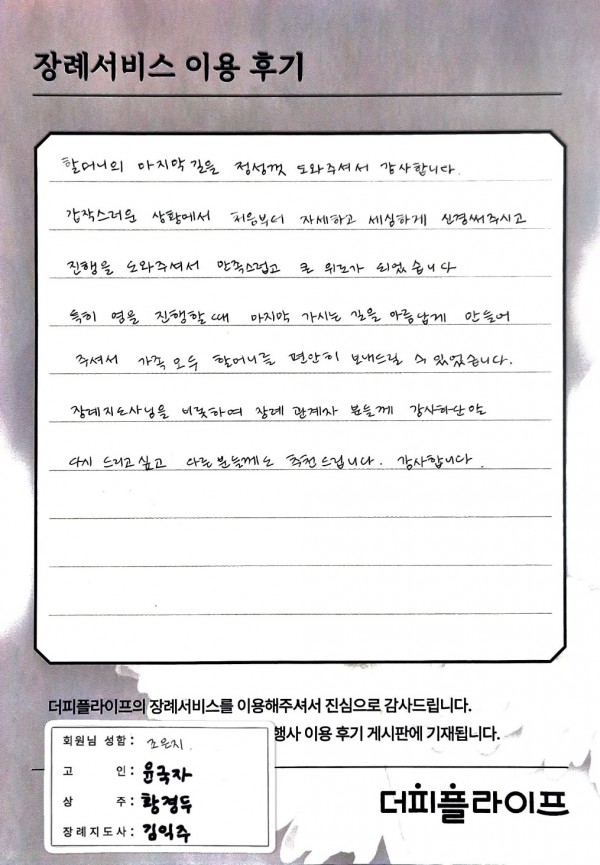 장례서비스 이용 후기
할머니의 마지막 길을 정성껏 도와주셔서 감사합니다.
갑작스러운 상황에서 처음부터 자세하고 세심하게 신경써주시고
진행을 도와주셔서 만족스럽고 큰 위로가 되었습니다
특히 염을 진행할 때 마지막 가시는 길을 아름답게 만들어
주셔서 가족 모두 할머니를 편안히 보내드릴 수 있었습니다.
장례지도사님을 비롯하여 장례 관계자 분들께 감사하단 말
다시 드리고 싶고 다른 분들께도 추천드립니다. 감사합니다.
더피플라이프의 장례서비스를 이용해주셔서 진심으로 감사드립니다.
행사 이용 후기 게시판에 기재됩니다.
회원님 성함 : 조은지
고 인 : 윤국자
상 주 : 황경두
장례지도사 : 김익주
더피플라이프